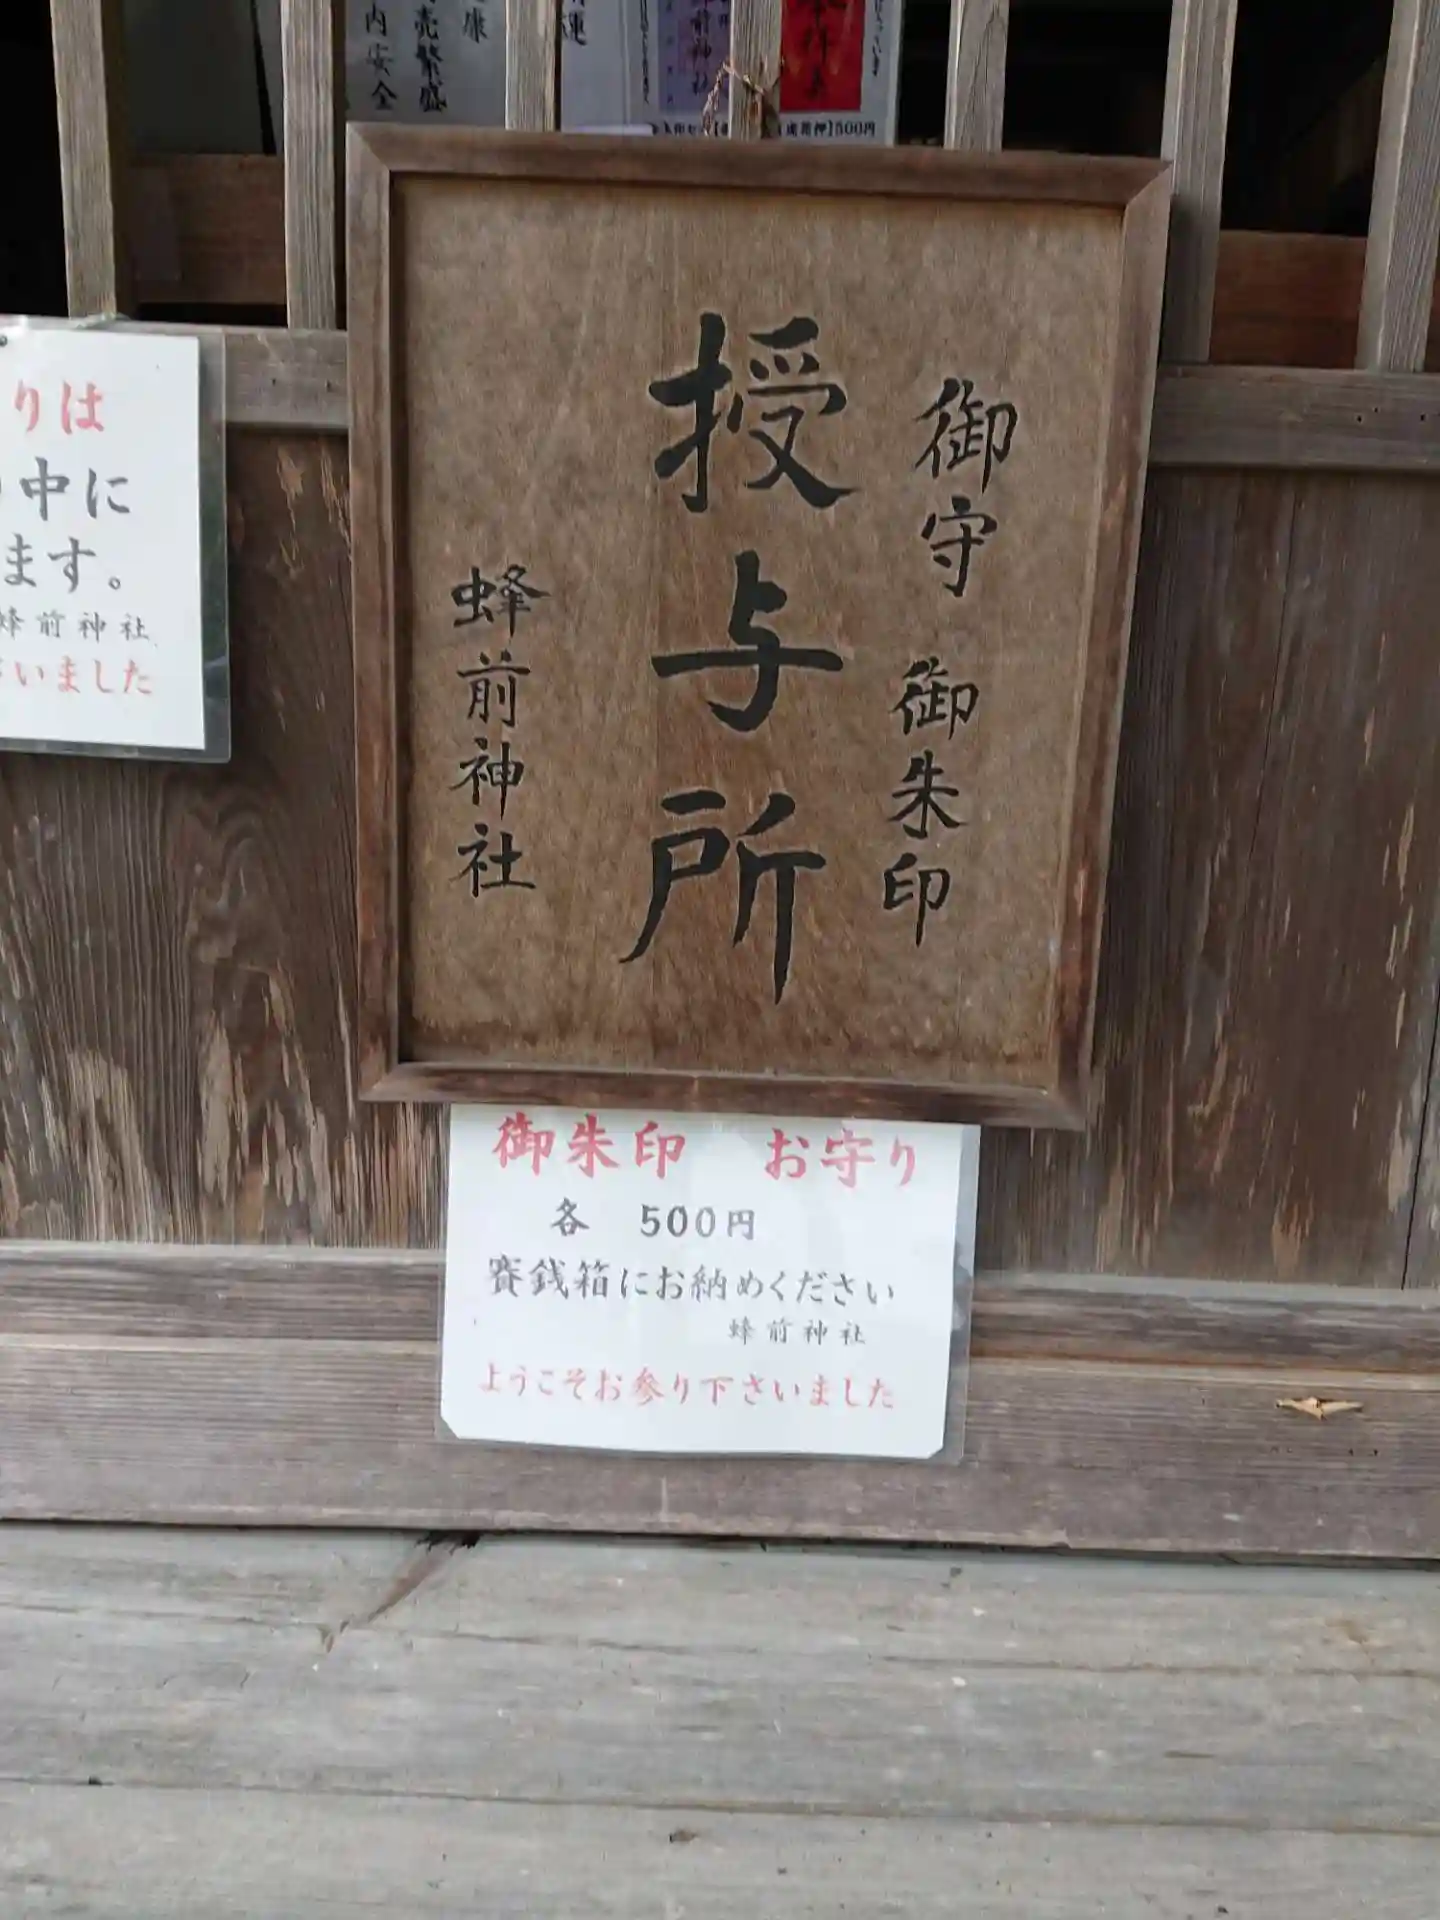 康
売繁盛
内安全
前神社
500円
御守 御朱印
授与所
蜂前神社
りは
中に
ます。
蜂前神社
いました
御朱印 お守り
各 500円
賽銭箱にお納めください
蜂前神社
ようこそお参り下さいました